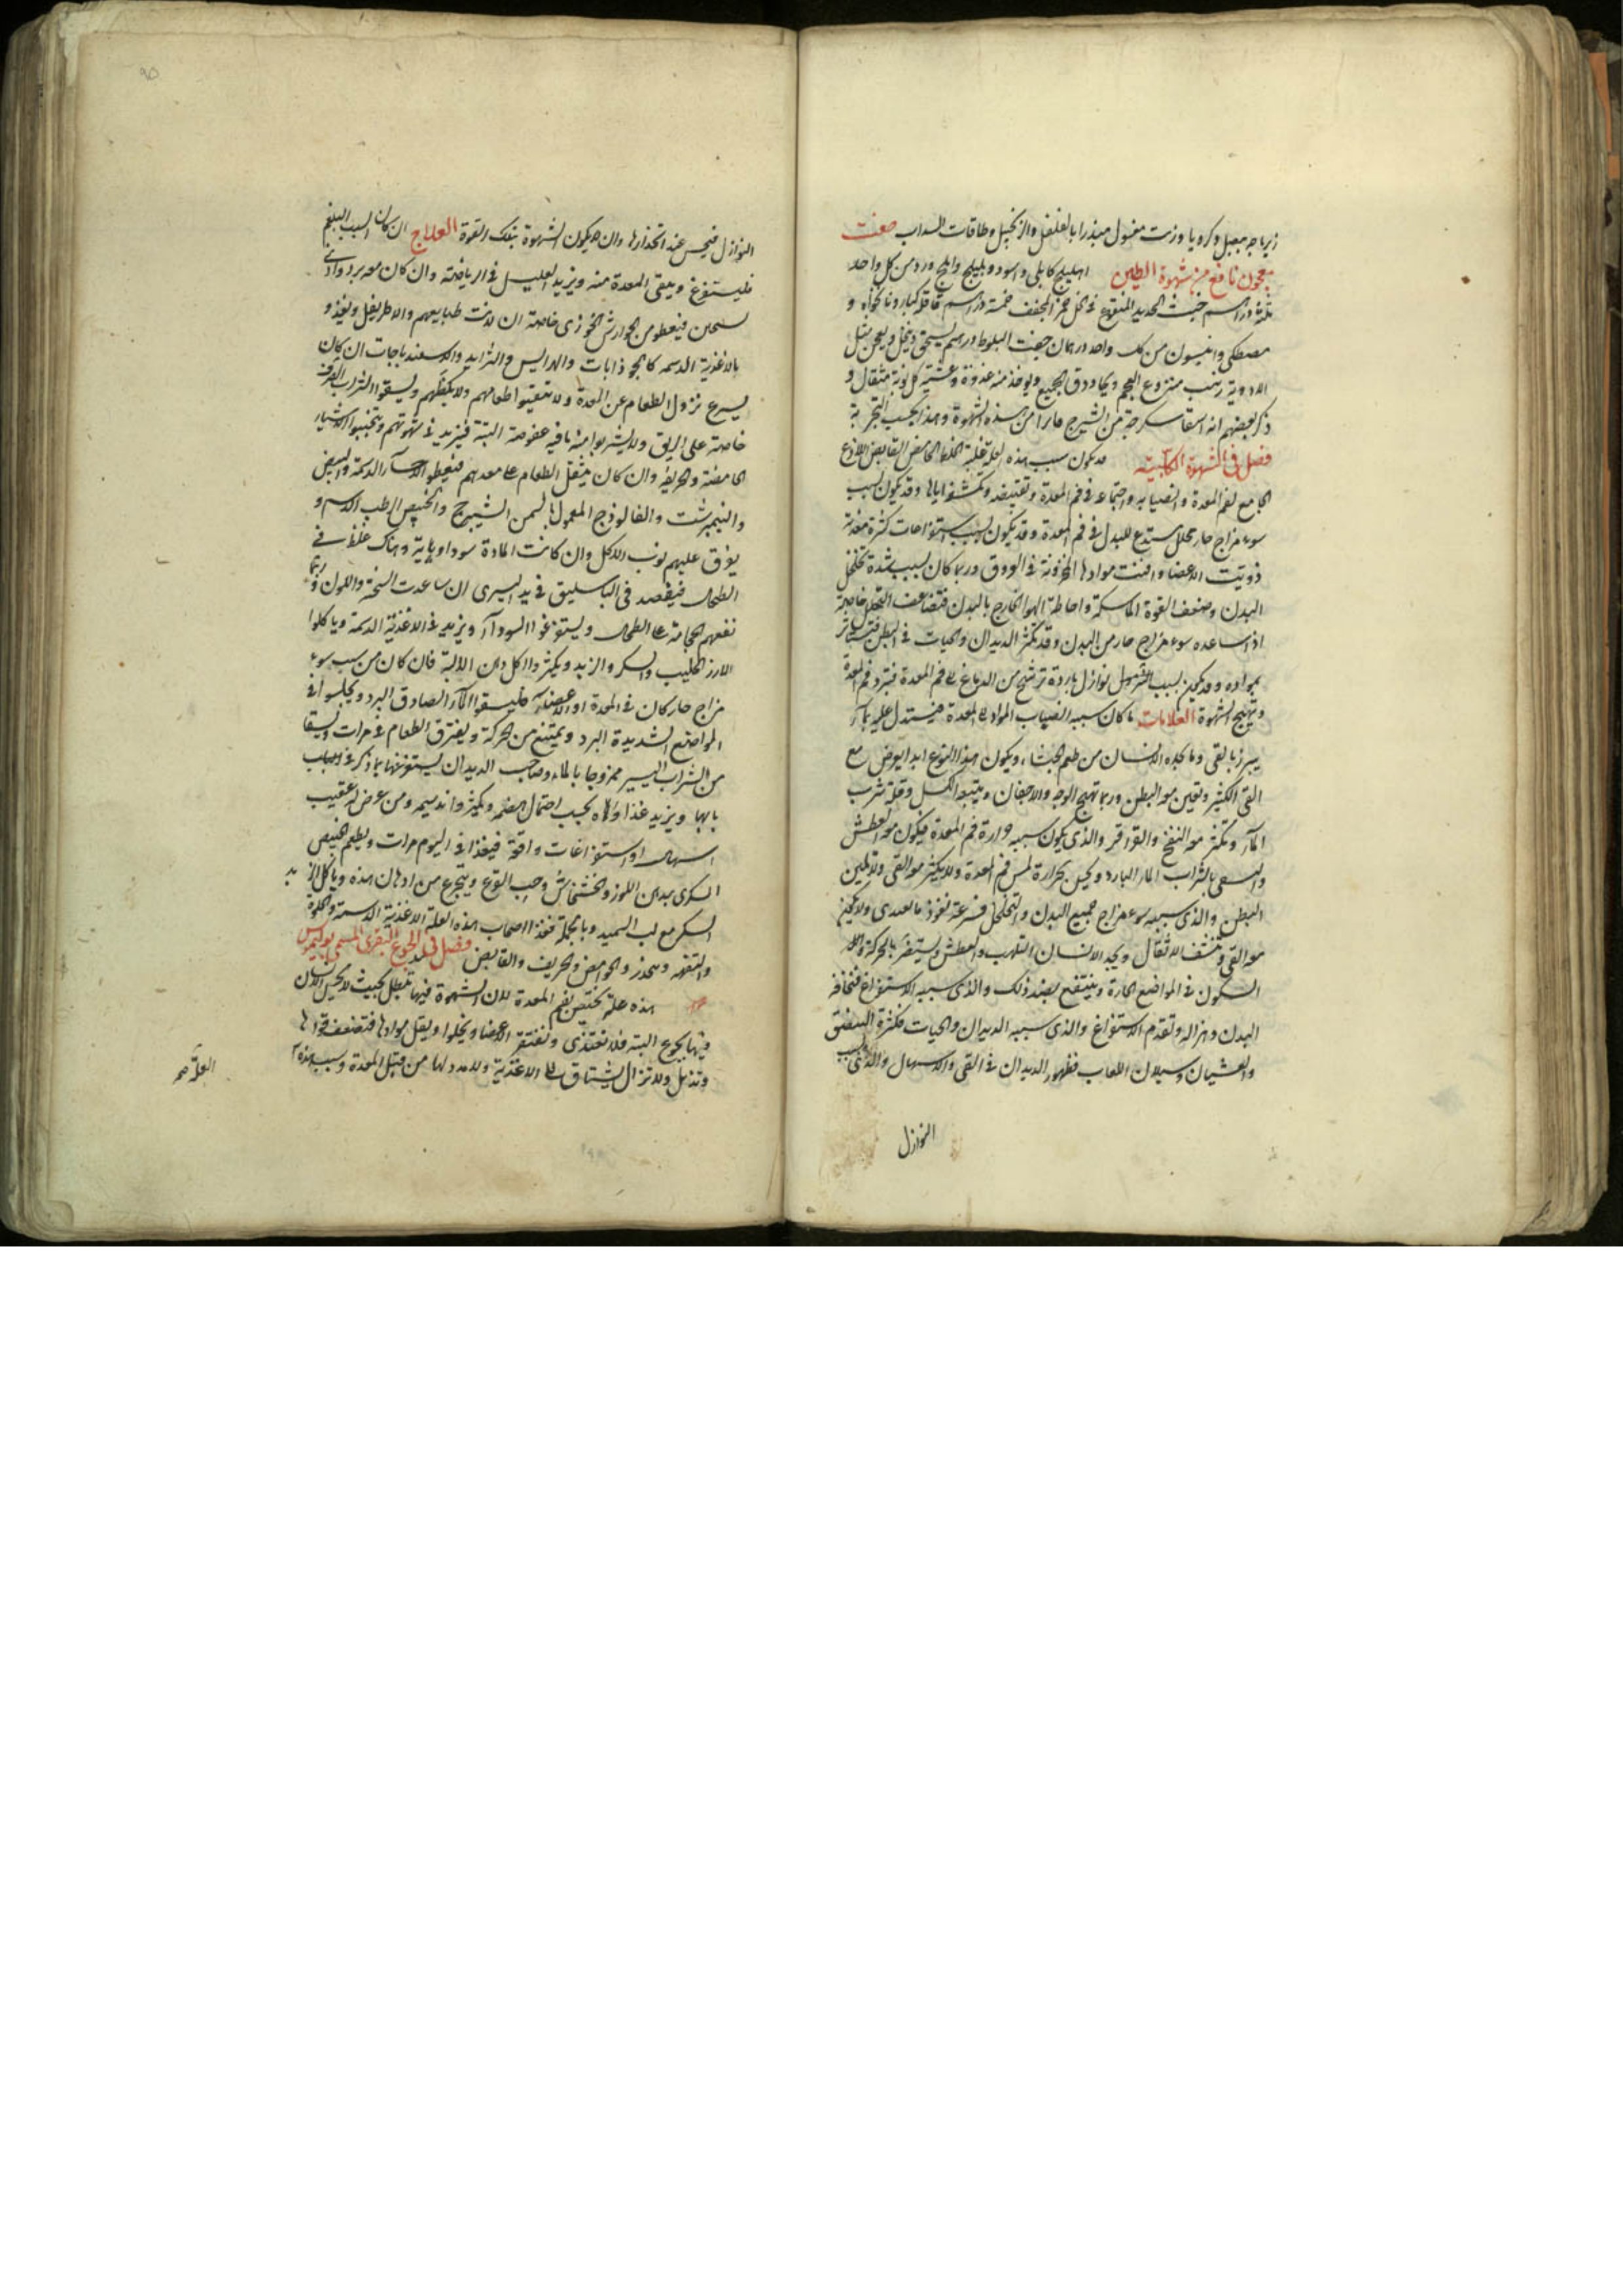 زيرباجه ببصل وكرويا وزيت مغسول مبذرا بالفلفل والزنجبيل وطاقات السداب صفت
معجون نافع من شهوة الطين اهليلج كابلى واسود وبليلج واملج ورد من كل واحد
ثلثة دراهم خبث الحديد المنقوع فى الخل خمر المجفف خمسة دراهم قاقلة كبار ونانخواه و
مصطكى وانيسون من كل واحد درهمان جفت البلوط درهم يسحق وينخل ويعجن بمثل
الادوية زبيب منزوع العجم ويجاد دق الجميع ويوخذ منه غدوة وعشية كل نوبة مثقال و
ذكر بعضهم انه اسقا سكرجة من الشيرج مابرا من هذه الشهوة وهذا بحسب التجربة
فصل فى الشهوة الكلبيه قد يكون سبب هذه العلة غلبة الخلط الحامض القابض اللاذع
الجامع لفم المعدة وانصبابه واجتماعه فى فم المعدة وتقبيضه وتكشفه اياها وقد يكون لسبب
سوء مزاج حار محلل مستدع للبدل فى فم المعدة وقد يكون لسبب استفراغات كثيرة مفرطة
ذويت الاعضا وافنت موادها المخزونة فى العروق وربما كان لسبب شدة تخلخل
البدن وضعف القوة الماسكة واحاطة الهوا الخارج بالبدن فتضاعف التحلل خاصة
اذا ساعده سوء مزاج حار من البدن وقد تكثر الديدان والحيات فى البطن فتستاثر
بمواده وقد يكون لسبب نزول نوازل باردة ترشح من الدماغ الى فم المعدة فتبرد فم المعدة
وتهيج الشهوة العلامات ما كان سببه انصباب المواد الى المعدة فيستدل عليه بما
يبرز بالقى وما يجده الانسان من طعم الجشاء ويكون هذا النوع ابدا يعرض مع
القى الكثير وتلين معه البطن وربما تهيج الوجه والاجفان ويتبعه الكسل وقلة شرب
الماء وتكثر معه النفخ والقراقر والذى يكون سببه حرارة فم المعدة فيكون معه العطش
والتسقى بالشراب الماء البارد ويحس بحرارة لمس فم المعدة ولا يكثر معه القى ولا تلين
البطن والذى سببه سوء مزاج جميع البدن والتخلخل فسرعة نفوذ ما يغدى ولا يكون
معه القى وتنشف الاثقال ويجد الانسان التلهب والعطش ويستضر بالحركة والا
السكون فى المواضع الحارة وينتفع بضد ذلك والذى سببه الاستفراغ فنحافة
البدن وهزاله وتقدم الاستفراغ والذى سببه الديدان والحيات فكثرة البصق
والغشيان وسيلان اللعاب فظهور الديدان فى القى والاسهال والذى سبب
النوازل
النوازل فيحس عند انحدارها وان لا يكون الشهوة بتلك القوة العلاج ان كان السبب البلغم
فليستفرغ وينقى المعدة منه ويزيد العليل فى الرياضة وان كان معه برد وادنى
سخان فيعطو من الجوارش الخوزى خاصة ان لانت طبايعهم والاطريفل ويغذو
بالاغذية الدسمه كالجوذابات والهرايس والثرايد والاسفندباجات ان كان
يسرع نزول الطعام عن المعدة ولا تتقيوا طعامهم ولا يكظهم ويسقوا الشراب الصرف
خاصة على الريق ولا يشربوا منه ما فيه عفوصة البتة فيزيد فى شهوتهم ويتجنبوا الاشياء
الحامضة والحريفة وان كان يثقل الطعام على معدهم فيعطوا الاحساء الدسمة والبيض
والنيمبرشت والفالوذج المعمول بالسمن الشيرج والخبيص الرطب الدسم و
يفرق عليهم نوب الاكل وان كانت المادة سوداوية وهناك غلظ فى
الطحال فيفصد فى الباسليق فى يد اليسرى ان ساعدت السخة واللون وربما
نفعهم الحجامة على الطحال ويستفرغوا السوداء ويزيد فى الاغذية الدسمة وياكلوا
الارز الحليب والسكر والزبد ويكثروا اكل دهن الالية فان كان من سبب سوء
مزاج حار كان فى المعدة او الاعضاء فليسقوا الماء الصادق البرد ويجلسوا فى
المواضع الشديدة البرد ويمتنع من الحركة ويفترق الطعام فى مرات ويسقا
من الشراب اليسير ممزوجا بالماء وصاحب الديدان يستفرغها بما ذكر فى
بابها ويزيد غذاوه بحسب احتمال هضمه ويكثر واندسيمه ومن عرض له عقيب
اسهال او استفراغات وافية فيغذا فى اليوم مرات ويطعم الخبيص
السكرى بدهن اللوز والخشخاش وحب القرع ويتجرع من ادهان هذه وياكل الزبد
السكر مع لب السميد وبالجملة فغذا اصحاب هذه العلة الاغذية الدسمة والحلوة
والتفهه ويحذر والحوامض والحريف والقابض فصل فى الجوع البقرى المسمى بوليموس
هذه علة يختص بفم المعدة لان الشهوة فيها تبطل بحيث لا يحس الانسان
فيها بجوع البتة فلا تغتذى وتفتقر الاعضا ويخلوا ويقل موادها فتضعف قواها
وتذبل ولا تزال يشتاق الى الاغذية ولا مدد لها من قبل المعدة وسبب هذه
العلة صح